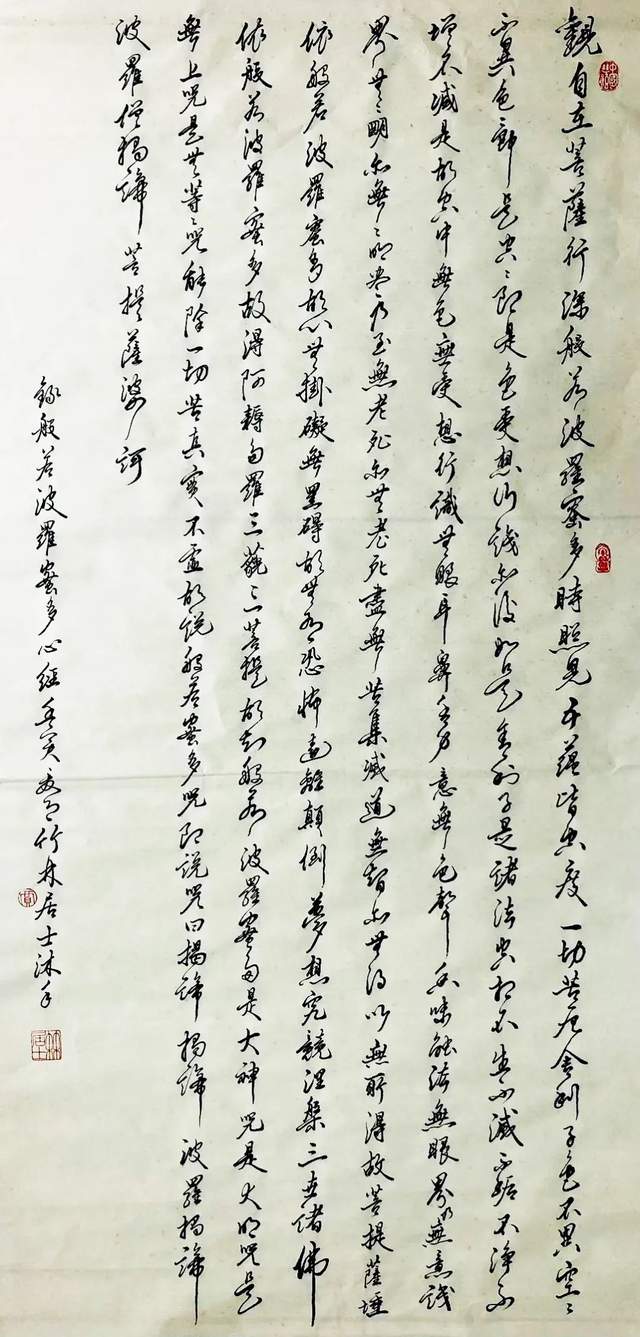 觀自在菩薩行深般若波羅蜜多時照見五蘊皆空度一切苦厄舍利子色不異空〻
不異色色即是空〻即是色受想行識亦復如是舍利子是諸法空相不生不滅不垢不淨不
增不減是故空中無色無受想行識无眼耳鼻舌身意無色聲香味觸法無眼界乃無意識
界无〻明亦無〻明盡乃至無老死亦无老死盡無苦集滅道無智亦无得以無所得故菩提薩埵
依般若波羅蜜多故心无掛礙無罣碍故无有恐怖遠離顛倒夢想究競涅槃三世諸佛
依般若波羅蜜多故得阿耨多羅三藐三菩提故知般若波羅蜜多是大神咒是大明咒是
無上咒是无等〻咒能除一切苦真實不虛故說般若蜜多咒即說咒曰揭諦揭諦 波羅揭諦
波羅僧揭諦 菩提薩婆訶
錄般若波羅蜜多心經 竹林居士沐手